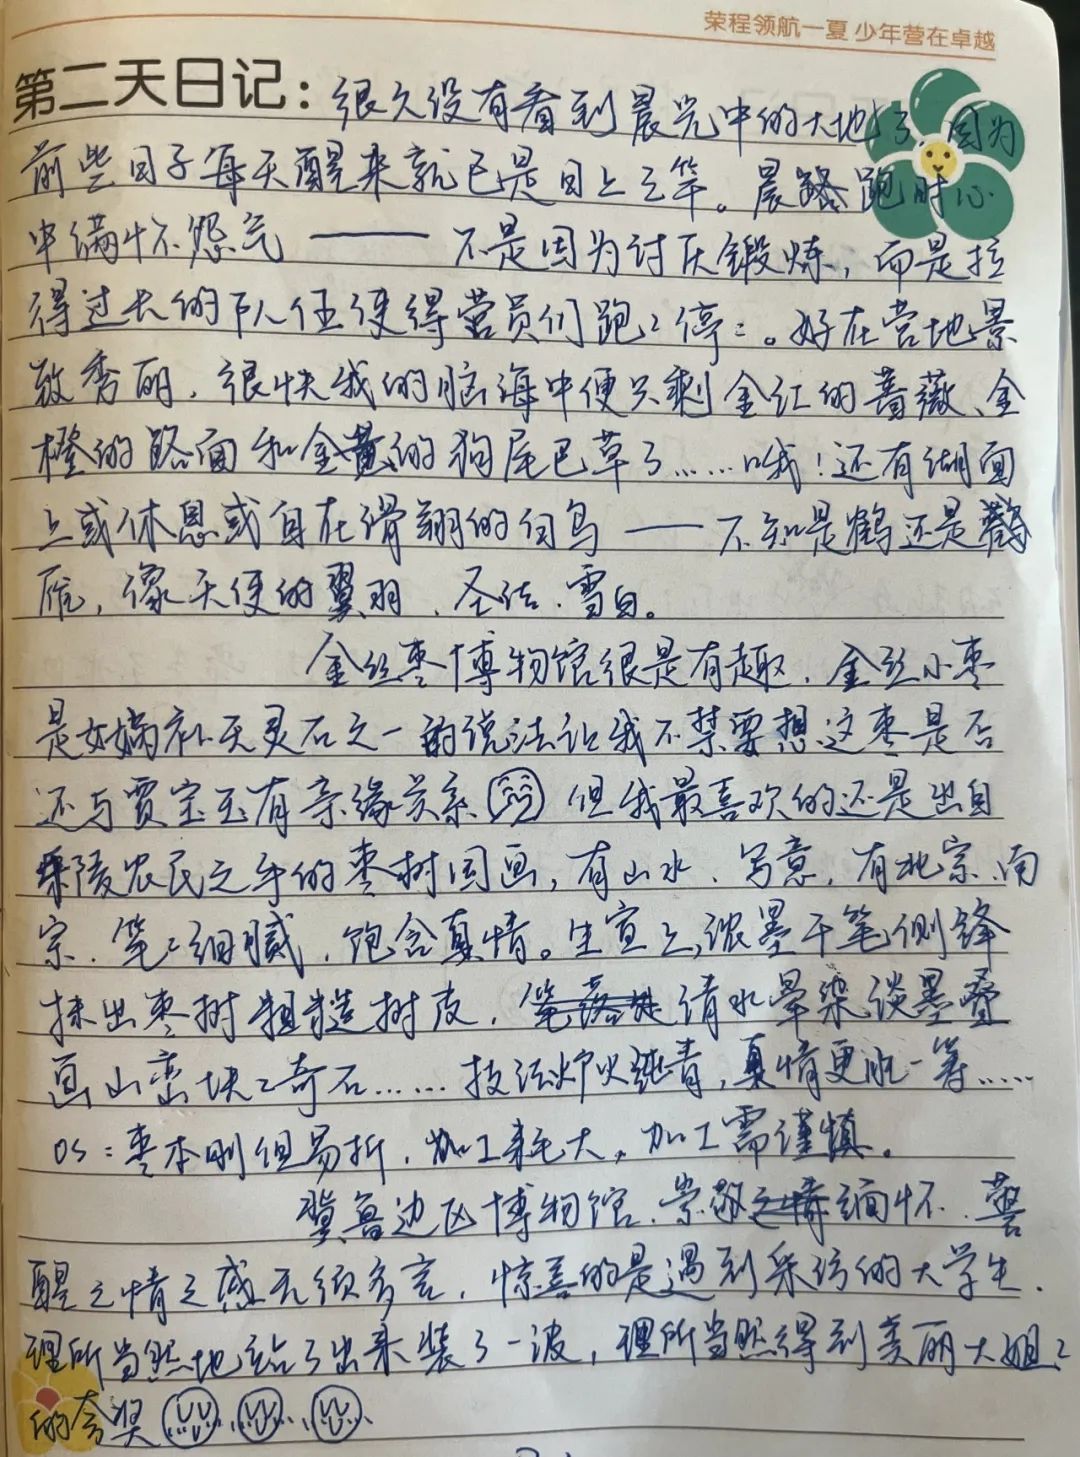 荣程领航一夏 少年营在卓越
第二天日记：很久没有看到晨光中的大地了，因为
前些日子每天醒来就已是日上三竿。晨跑时心
中满怀怨气——不是因为讨厌锻炼，而是拉
得过长的队伍使得营员们跑跑停停。好在营地景
致秀丽，很快我的脑海中便只剩金红的蔷薇、金
橙的路面和金黄的狗尾巴草了……哦！还有湖面
上或休息或自在滑翔的白鸟——不知是鹤还是鹳
雁，像天使的翼羽，圣洁、雪白。
金丝枣博物馆很是有趣，金丝小枣
是女娲补天灵石之一的说法让我不禁要想这枣是否
还与贾宝玉有亲缘关系 但我最喜欢的还是出自
乐陵农民之手的枣树国画，有山水、写意，有北宗、南
宗，笔笔细腻，饱含真情。生宣上，浓墨干笔侧锋
抹出枣树粗糙树皮，清水晕染淡墨叠
画山峦块块奇石……技法炉火纯青，真情更胜一筹……
OS：枣本刚但易折，加工耗大，加工需谨慎。
冀鲁边区博物馆，崇敬缅怀、警
醒之情之感无须多言，惊喜的是遇到采访的大学生，
理所当然地给了出来装了一波，理所当然得到美丽大姐姐
的夸奖